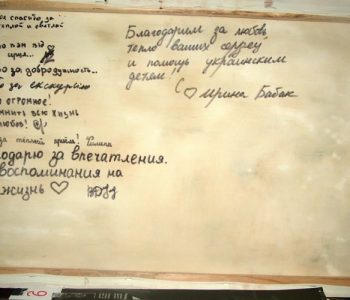 спасибо за
тёплый и светлый
за добродушность..
за экскурсию
огромное!
всю жизнь
за тёплый приём!
одарю за впечатления.
воспоминания на
жизнь ♡
Благодарим за любовь,
тепло ваших сердец
и помощь украинским
детям!
С ♡ Ирина Бабак